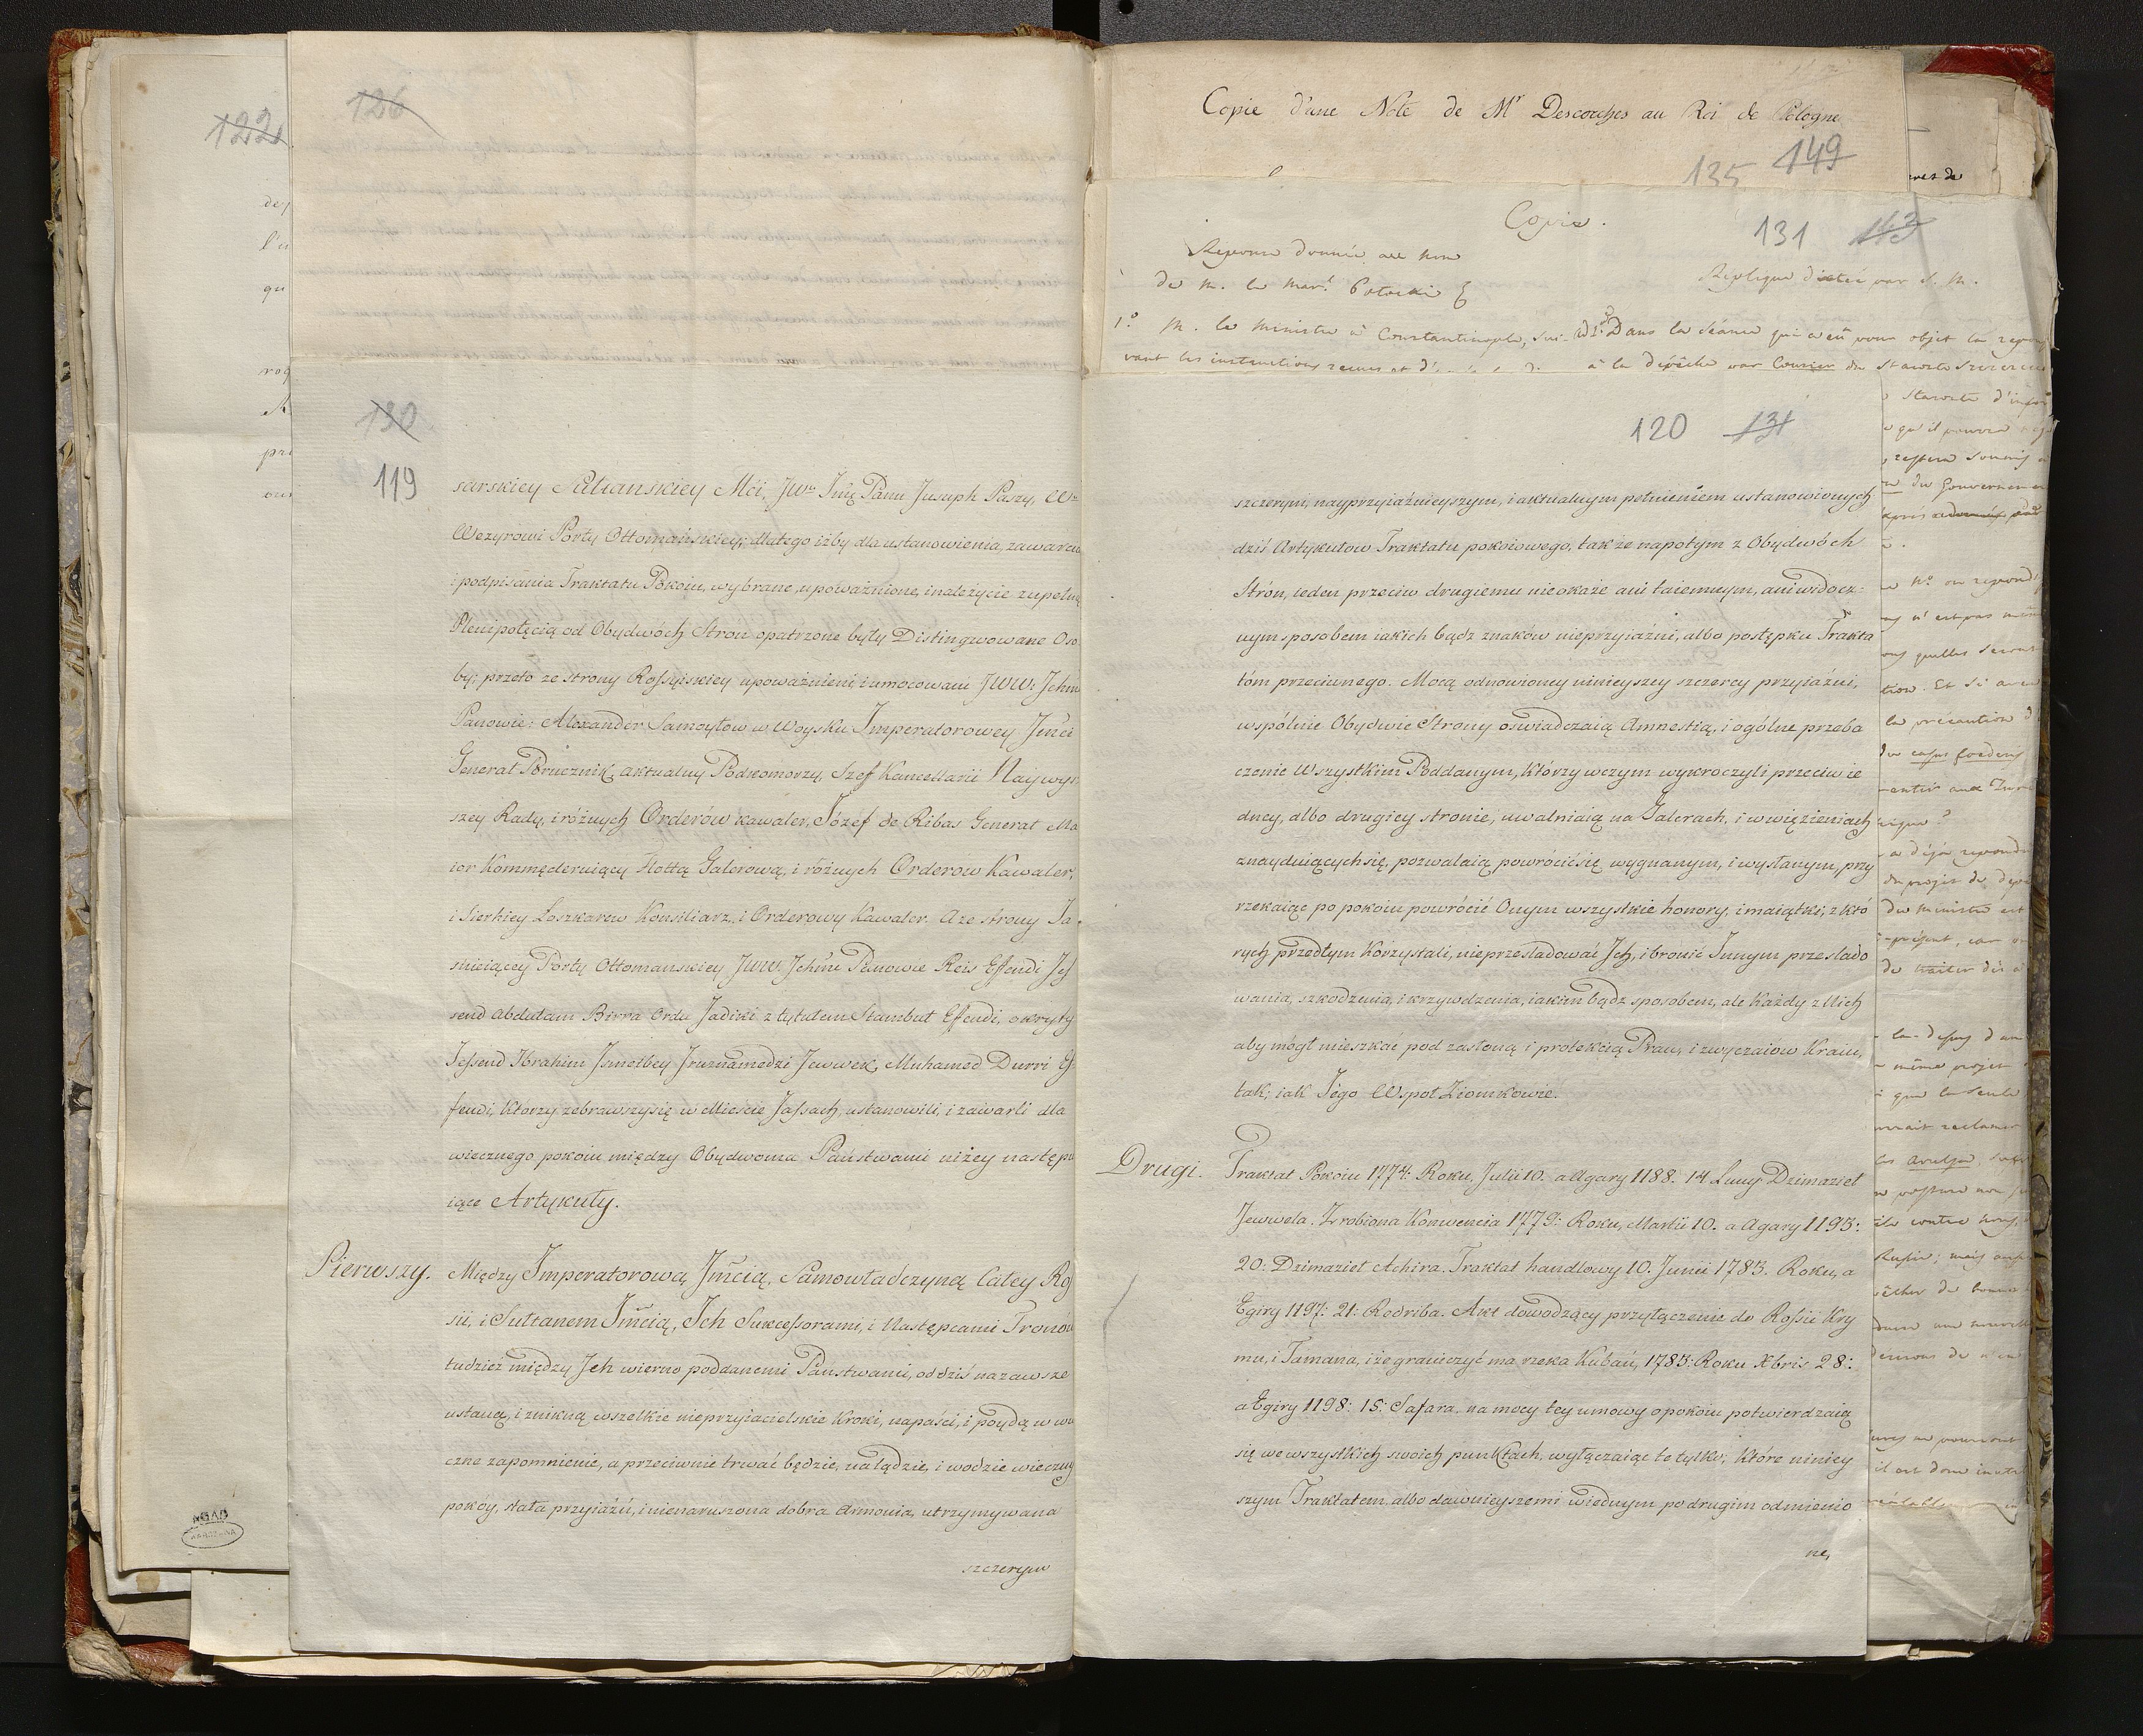 122
dep
l'u
qu
roq
A
pri
our
AGAD
WARSZAWA
126
130
119
sarskiey Sultanskiey Mći, JWu Jmę Panu Jusuph Paszy, W
Wezyrowi Porty Ottomańskiey; dlatego iżby dla ustanowienia, zawarcia
i podpisania Traktatu Pokoiu, wybrane, upoważnione, i należycie zupełną
Plenipotęcią od Obydwóch Stron opatrzone były Distingwowane Oso
by; przeto ze strony Rossyiskiey upoważnieni, i umocowani JWW: Jchm
Panowie: Alexander Samoyłow w Woysku Imperatorowey Jmći
Generał Porucznik, aktualny Podkomorzy, Szef Kancellarii Naywyż
szey Rady, i różnych Orderów kawaler, Józef de Ribas Generał Ma
ior Kommęderuiący Flottą Galerową, i różnych Orderow Kawaler,
i Sierhiey Łoszkarew Konsiliarz, i Orderowy Kawaler. A ze strony Ja
śnieiącey Porty Ottomanskiey JWW. Jchmć Panowie Reis Effendi Jes
send Abdułam Birra Ordu Jadiki z tytułem Stambuł Effendi, okryty
Jessend Ibrahim Jsmetbey Jruznamedzi Jewwek, Muhamed Durri Ef
fendi, Którzy zebrawszy się w Mieście Jassach, ustanowili, i zawarli dla
wiecznego pokoiu między Obydwoma Państwami niżey następu
iące Artykuły.
Pierwszy. Między Imperatorową Jmcią, Samowładczyną Całey Ros
sii, i Sułtanem Jmcią, Ich Sukcessorami, i Następcami Tronów
tudzież między Jch wierno poddanemi Państwami, od dziś na zawsze
ustaną, i znikną wszelkie nieprzyiacielskie Kroki, napaści, i poydą w wie
czne zapomnienie, a przeciwnie trwać będzie, na lądzie, i wodzie wieczny
pokóy, stała przyiaźń, i nienaruszona dobra Armonia, utrzymywana
szczerym
Copie d'une Note de Mr Descorches au Roi de Pologne
135 149
eres de
Copie.
131 143
Reponse donnée au nom
de M. le Maral Potocki
Replique dictée par S. M.
1.o M. le Ministre à Constantinople, sui-
vant les instructions recues et d'
ad 1.um Dans la séance qui a eû pour objet la repon
à la dépêche par Courier du Staroste
120 131
szczerym, nayprzyiaźnieyszym, i aktualnym pełnieniem ustanowionych
dziś Artykułow Traktatu pokoiowego, tak że napotym z Obydwóch
Strón, ieden przeciw drugiemu nie okaże ani taiemnym, ani widocz-
nym sposobem iakich bądz znaków nieprzyiaźni, albo postępku Trakta
tóm przeciwnego. Mocą odnowioney ninieyszey szczerey przyiaźni,
wspólnie Obydwie Strony oświadczaią Amnestią, i ogólne przeba
czenie Wszystkim Poddanym, Którzy w czym wykroczyli przeciw ie
dney, albo drugiey stronie, uwalniaią na Galerach, i w więzieniach
znayduiących się, pozwalaią powrócić się wygnanym, i wysłanym, przy
rzekaiąc po pokoiu powrócić Onym wszystkie honory, i maiątki, z któ
rych przedtym Korzystali, nie prześladować Jch, i bronić Innym przeslado
wania, szkodzenia, i krzywdzenia, iakim bądz sposobem, ale Każdy z Nich
aby mógł mieszkać pod zasłoną i protekcią Praw, i zwyczaiów Kraiu,
tak, iak Jego WspołZiomkowie.
Drugi. Traktat Pokoiu 1774: Roku, Julii 10. a Agary 1188. 14 Luny Dzimaziel
Jewwela. Zrobiona Konwencia 1779: Roku, Martii 10. a Agary 1193:
20: Dzimaziel Achira. Traktat handlowy 10. Junii 1783. Roku, a
Egiry 1197: 21: Redriba. Akt dowodzący przyłączenie do Rossii Kry
mu, i Tamana, i że graniczyć ma rzeka Kubań, 1783: Roku Xbris 28:
a Egiry 1198: 15: Safara. na mocy tey umowy o pokoiu potwierdzaią
się we wszystkich swoich punktach, wyłączaiąc te tylko; które niniey
szym Traktatem, albo dawnieyszemi wiednym po drugim odmienio
ne,
Staroste d'infor
qu'il pourra
restera soumis
du Gouvernemen
on repond
n'est pas
quelles seront
tion. Et si
la précaution d
casus foederis
mentir aux
a déja repondu
du projet de
du Ministre est
present, car
de traiter dès
même projet
que la seule
reclamer
contre nous
Russie; mais
pourront
il est donc